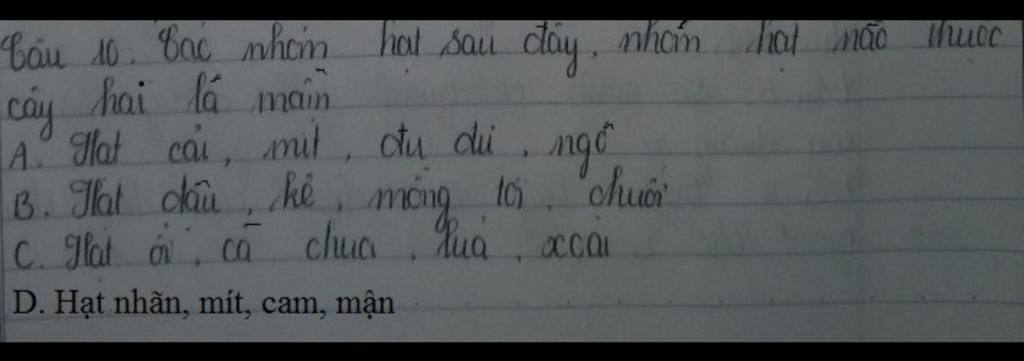 Câu 10. Các nhóm hạt sau đây, nhóm hạt nào thuộc
cây hai lá mầm
A. Hạt cải, mít, đu đủ, ngô
B. Hạt đậu, kê, mồng tơi, chuối
C. Hạt ổi, cà chua, lúa, xoài
D. Hạt nhãn, mít, cam, mận